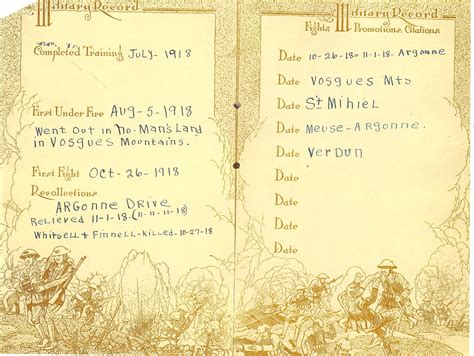 Military Record
Completed Training July-1918
First Under Fire Aug-5-1918
Went Out in No-Man's Land
in Vosgues Mountains.
First Fight Oct-26-1918
Recollections
Argonne Drive
Relieved 11-1-18. (11-11-11-18)
Whitsell & Finnell-Killed-10-27-18
Military Record
Fights, Promotions, Citations
Date 10-26-18 = 11-1-18- Argonne
Date Vosgues Mts
Date St Mihiel
Date Meuse-Argonne.
Date Verdun
Date
Date
Date
Date